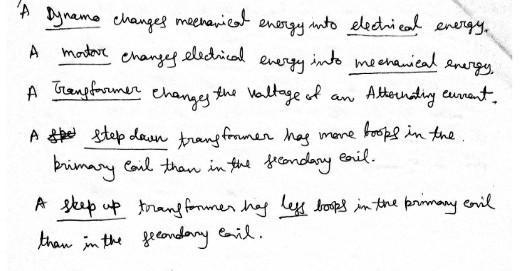 A Dynamo changes mechanical energy into electrical energy.
A motor changes electrical energy into mechanical energy.
A Transformer changes the Voltage of an Alternating current.
A step down transformer has more loops in the
primary coil than in the secondary coil.
A step up transformer has less loops in the primary coil
than in the secondary coil.